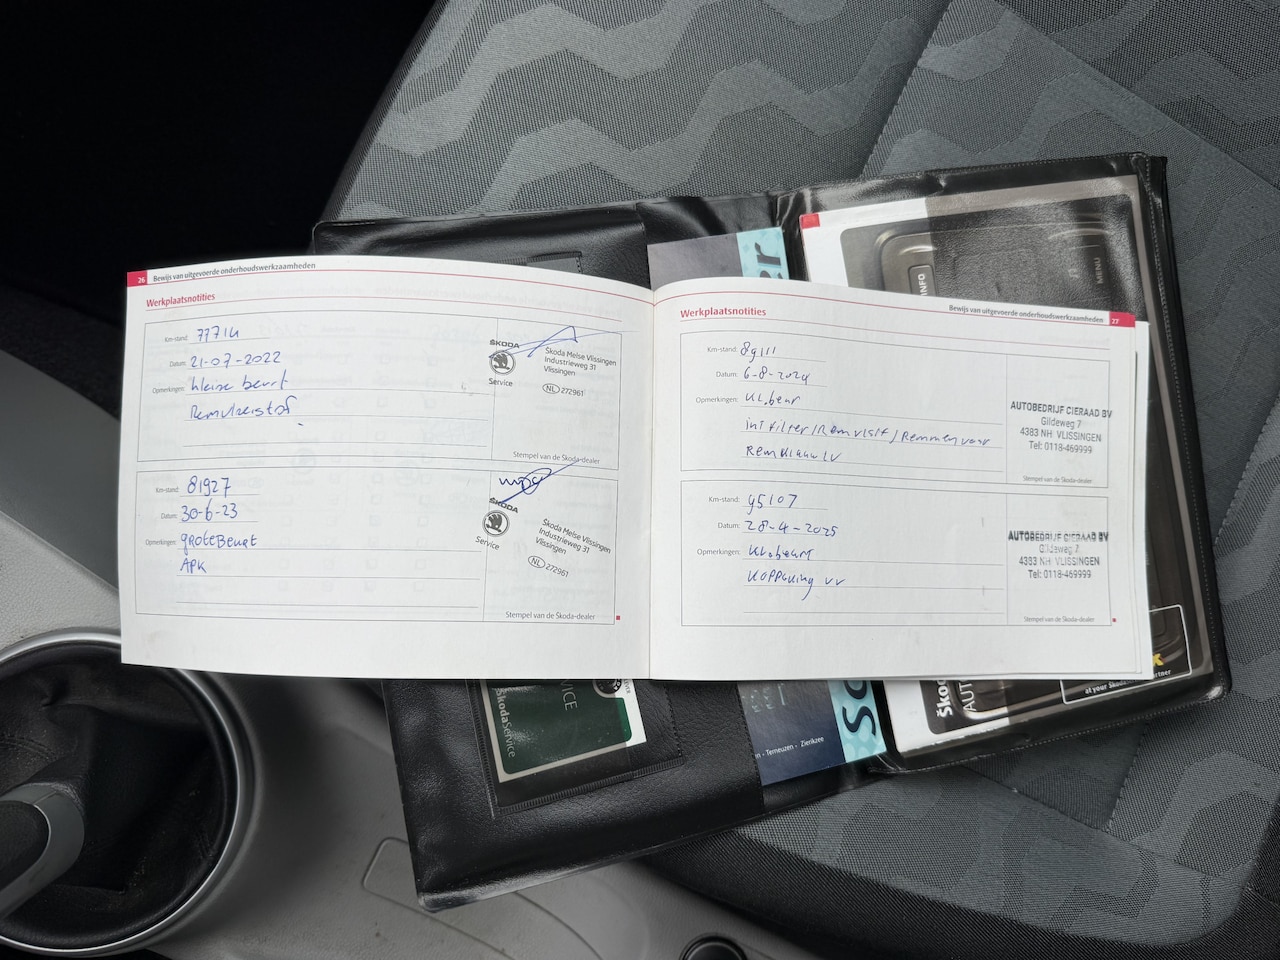 26 Bewijs van uitgevoerde onderhoudswerkzaamheden
Werkplaatsnotities
Km-stand: 77714
Datum: 21-07-2022
Opmerkingen: kleine beurt
Remvloeistof
ŠKODA
Service
Škoda Melse Vlissingen
Industrieweg 31
Vlissingen
NL 272961
Stempel van de Škoda-dealer
Km-stand: 81927
Datum: 30-6-23
Opmerkingen: groteBeurt
APK
ŠKODA
Service
Škoda Melse Vlissingen
Industrieweg 31
Vlissingen
NL 272961
Stempel van de Škoda-dealer
Bewijs van uitgevoerde onderhoudswerkzaamheden 27
Werkplaatsnotities
Km-stand: 89111
Datum: 6-8-2024
Opmerkingen: KL.beurt
int filter/Remvlst/Remmen voor
Remklauw LV
AUTOBEDRIJF CIERAAD BV
Gildeweg 7
4383 NH VLISSINGEN
Tel: 0118-469999
Stempel van de Škoda-dealer
Km-stand: 95107
Datum: 28-4-2025
Opmerkingen: KL.beurt
Koppeling vv
AUTOBEDRIJF CIERAAD BV
Gildeweg 7
4383 NH VLISSINGEN
Tel: 0118-469999
Stempel van de Škoda-dealer
INFO
MENU
ŠkodaService
- Terneuzen - Zierikzee
at your Škoda